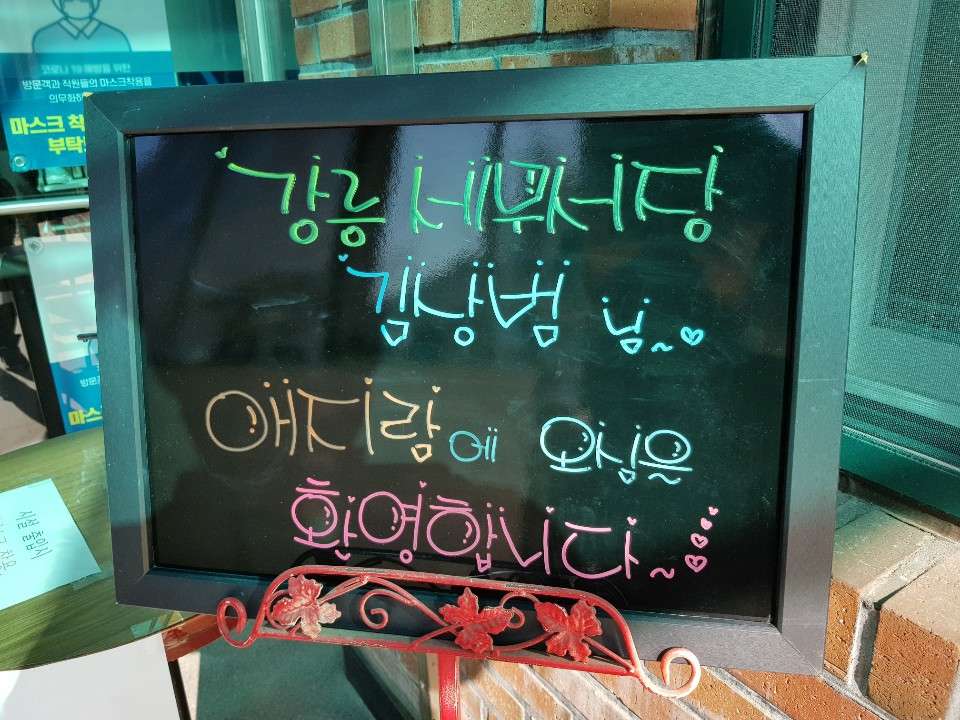 코로나 19 예방을 위한
방문객과 직원들의 마스크착용을
의무화하
마스크 착
부탁
강릉 세뿌서당
김상범 님~♡
애지람에 오심을
환영합니다~♡♡♡♡
방문
마스
시설 출입시